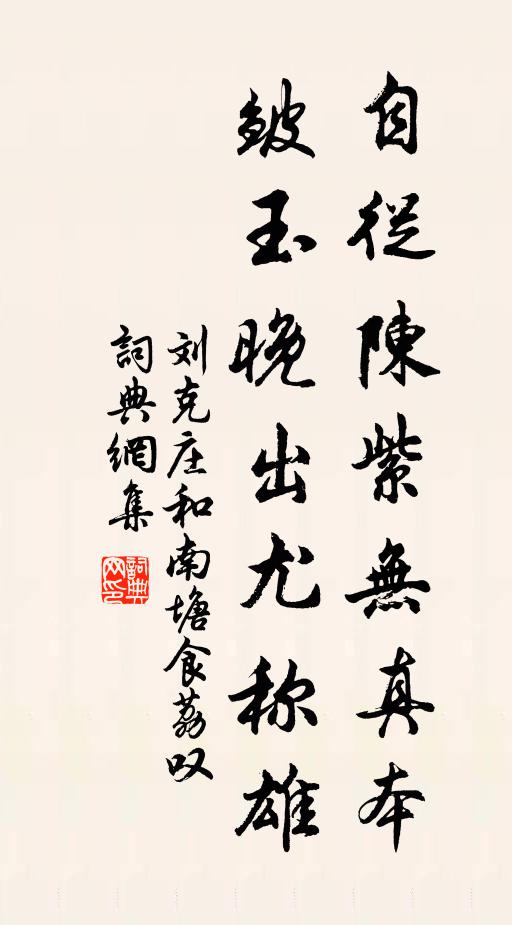 自從陳紫無真本
皴玉晚出尤称雄
刘克庄和南塘食荔叹
詞典網集
詞典网印